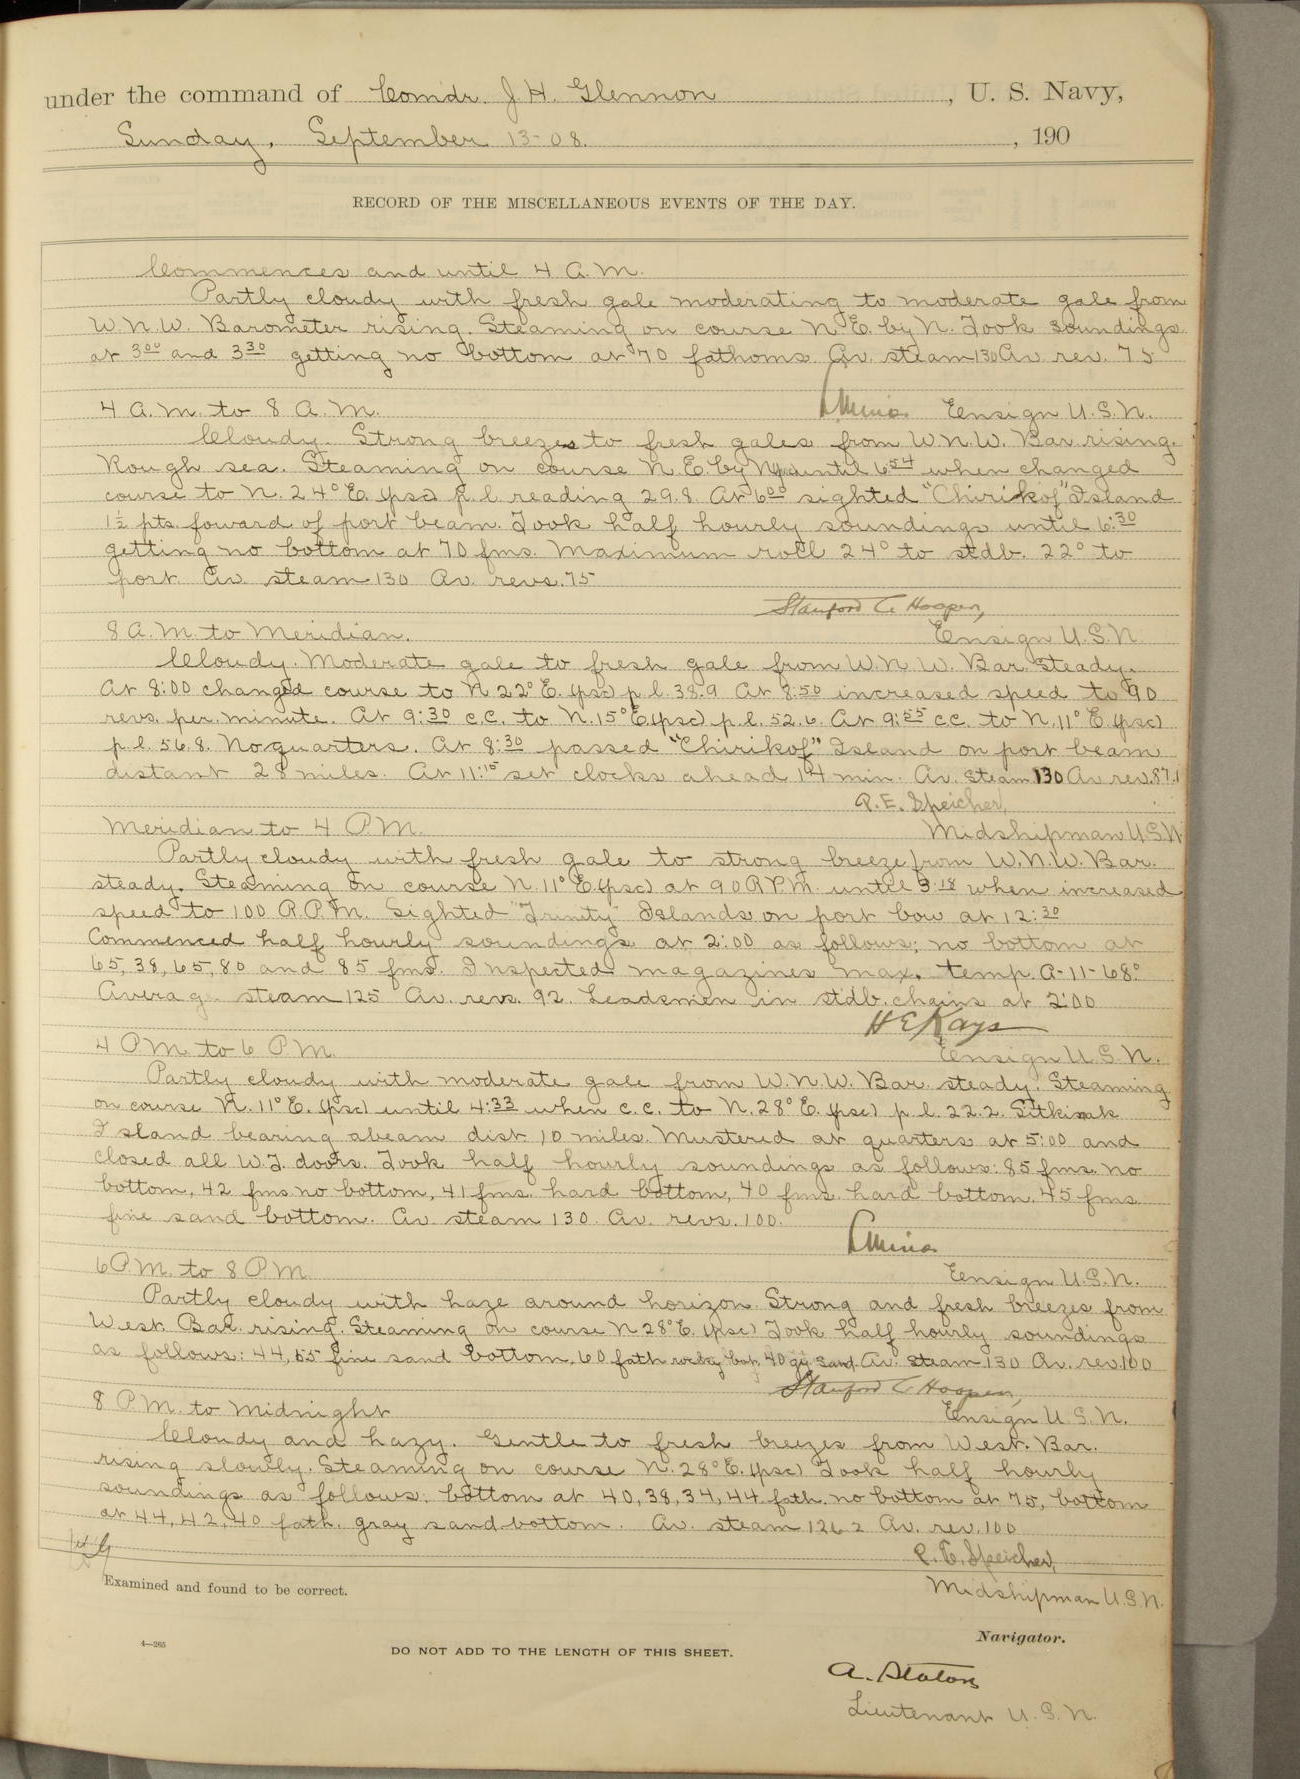 under the command of Comdr. J. H. Glennon, U. S. Navy,
Sunday, September 13-08., 190
RECORD OF THE MISCELLANEOUS EVENTS OF THE DAY.
Commences and until 4 A.M.
Partly cloudy with fresh gale moderating to moderate gale from
W.N.W. Barometer rising. Steaming on course N.E. by N. Took soundings
at 3 00 and 3 30 getting no bottom at 70 fathoms. Av. steam 130 Av. rev. 75
Ensign U.S.N.
4 A.M. to 8 A.M.
Cloudy. Strong breezes to fresh gales from W.N.W. Bar rising.
Rough sea. Steaming on course N.E. by N. until 6 54 when changed
course to N. 24° E. (psc) p.l. reading 29.8. At 6 00 sighted "Chirikof" Island
1½ pts. foward of port beam. Took half hourly soundings until 6:30
getting no bottom at 70 fms. Maximum roll 24° to stdb. 22° to
port Av. steam 130 Av. revs. 75
Stanford C. Hooper,
Ensign U.S.N.
8 A.M. to Meridian.
Cloudy. Moderate gale to fresh gale from W.N.W. Bar. Steady.
At 8:00 changed course to N 22° E. (psc) p.l. 38.9 At 8:50 increased speed to 90
revs. per. minute. At 9:30 c.c. to N. 15° E (psc) p.l. 52.6. At 9:55 c.c. to N. 11° E (psc)
p.l. 56.8. No quarters. At 8:30 passed "Chirikof" Island on port beam
distant 28 miles. At 11:15 set clocks ahead 14 min. Av. steam 130 Av rev. 87.1
P. E. Speicher,
Midshipman U.S.N.
Meridian to 4 P.M.
Partly cloudy with fresh gale to strong breeze from W.N.W. Bar.
steady. Steaming on course N. 11° E (psc) at 90 R.P.M. until 3 18 when increased
speed to 100 R.P.M. Sighted "Trinity" Islands on port bow at 12:30
Commenced half hourly soundings at 2:00 as follows; no bottom at
65, 38, 65, 80 and 85 fms. Inspected magazines max. temp. A-11-68°
Average steam 125 Av. revs. 92. Leadsmen in stdb. chains at 2:00
H E Kays
Ensign U.S.N.
4 P.M. to 6 P.M.
Partly cloudy with moderate gale from W.N.W. Bar. steady. Steaming
on course N. 11° E. (psc) until 4:33 when c.c. to N. 28° E. (psc) p.l. 22.2. Sitkinak
Island bearing abeam dist 10 miles. Mustered at quarters at 5:00 and
closed all W.T. doors. Took half hourly soundings as follows: 85 fms. no
bottom, 42 fms no bottom, 41 fms. hard bottom, 40 fms. hard bottom. 45 fms
fine sand bottom. Av. steam 130. Av. revs. 100.
Ensign U.S.N.
6 P.M. to 8 P.M.
Partly cloudy with haze around horizon. Strong and fresh breezes from
West. Bar. rising. Steaming on course N 28° E. (psc) Took half hourly soundings
as follows: 44, 55 fine sand bottom, 60 fath rocky bot, 40 gy sand. Av. steam 130 Av. rev. 100
Stanford C Hooper,
Ensign U.S.N.
8 P.M. to Midnight
Cloudy and hazy. Gentle to fresh breezes from West. Bar.
rising slowly. Steaming on course N. 28° E. (psc) Took half hourly
soundings as follows: bottom at 40, 38, 34, 44 fath. no bottom at 75, bottom
at 44, 42, 40 fath. gray sand bottom. Av. steam 126.2 Av. rev. 100
P. E. Speicher,
Midshipman U.S.N.
Examined and found to be correct.
Navigator.
4—265
DO NOT ADD TO THE LENGTH OF THIS SHEET.
A. Staton
Lieutenant U.S.N.